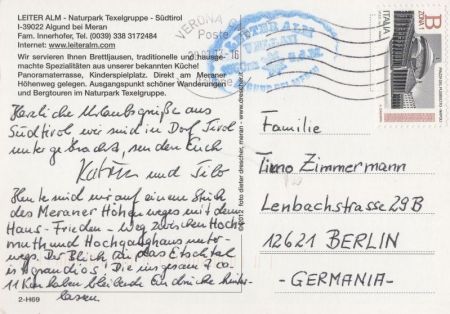 LEITER ALM - Naturpark Texelgruppe - Südtirol
I-39022 Algund bei Meran
Fam. Innerhofer, Tel. (0039) 338 3172484
Internet: www.leiteralm.com
Wir servieren Ihnen Brettljausen, traditionelle und hausge-
machte Spezialitäten aus unserer bekannten Küche!
Panoramaterrasse, Kinderspielplatz. Direkt am Meraner
Höhenweg gelegen. Ausgangspunkt schöner Wanderungen
und Bergtouren im Naturpark Texelgruppe.
Herzliche Urlaubsgrüße aus
Südtirol wir sind in Dorf Tirol
untergebracht, senden Euch
Katrin und Tilo
Heute sind wir auf einem Stück
des Meraner Höhenweges mit dem
Hans-Frieden-Weg zwischen Hoch
muth und Hochganghaus unter-
wegs. Der Blick in das Etschtal
ist grandios! Die insgesamt ca.
11 Km haben bleibende Eindrücke hinter-
lassen.
2-H69
© 2012 foto dieter drescher, meran - www.drescher.it
VERONA
Poste
LEITER ALM
ITALIA
B
ZONA
Familie
Timo Zimmermann
Lenbachstrasse 29B
12621 BERLIN
-GERMANIA-